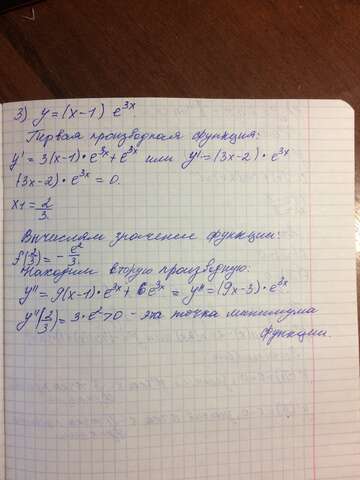 3) y=(x-1) e^{3x}.
Первая производная функция:
y'=3(x-1)·e^{3x}+e^{3x} или y'=(3x-2)·e^{3x}
(3x-2)·e^{3x}=0.
x1=2/3.
Вычислям значение функции:
f(2/3)=-e^2/3.
Находим вторую производную:
y''=9(x-1)·e^{3x}+6e^{3x}= y''=(9x-3)·e^{3x}
y''(2/3)=3·e^2>0 - эта точка минимума
функции.